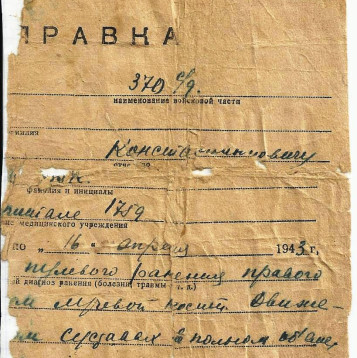 ПРАВКА
370 с/д.
наименование войсковой части
милия
Константиновичу
отчество
фамилия и инициалы
питале 1759
медицинского учреждения
по „16“ апреля 1943 г.
пулевого ранения правого
диагноз ранения (болезни, травмы и т. д.)
левой кости Движе
суставах в полном объеме